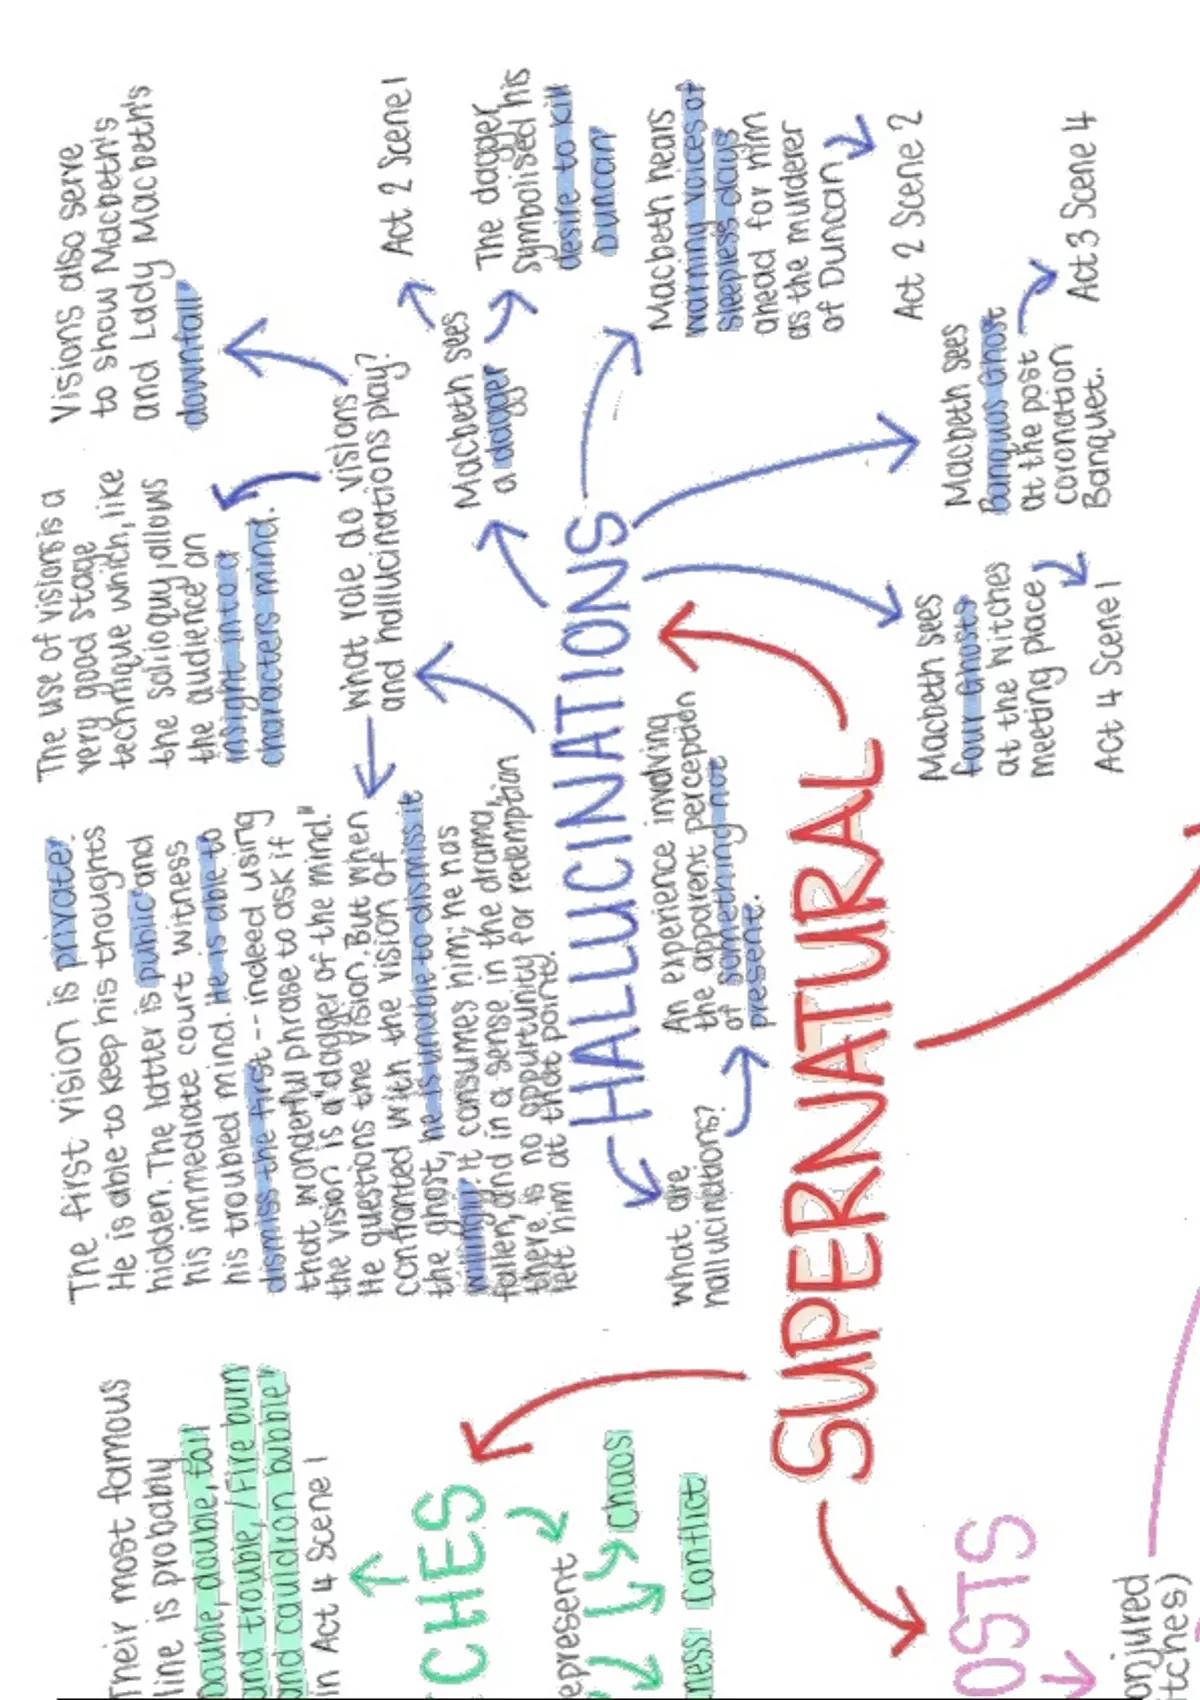 Their most famous
line is probably
"Double, double, toil
and trouble, / Fire burn
and cauldron bubble"
in Act 4 Scene 1
CHES
epresent
Chaos
ness
Conflict
The first vision is private.
He is able to keep his thoughts
hidden. The latter is public and
his immediate court witness
his troubled mind. He is able to
dismiss the first -- indeed using
that wonderful phrase to ask if
the vision is a "dagger of the mind."
He questions the vision. But when
confronted with the vision of
the ghost, he is unable to dismiss it
willingly. It consumes him; he has
fallen, and in a sense in the drama,
there is no oppurtunity for redemption
left him at that point.
The use of visions is a
very good stage
technique which, like
the soliloquy, allows
the audience an
insight into a
characters mind.
Visions also serve
to show Macbeth's
and Lady Macbeth's
downfall
What role do visions
and hallucinations play?
Macbeth sees
a dagger
Act 2 Scene 1
The dagger
symbolised his
desire to kill
Duncan
HALLUCINATIONS
What are
hallucinations?
An experience involving
the apparent perception
of something not
present.
Macbeth hears
warning voices of
sleepless days
ahead for him
as the murderer
of Duncan
Act 2 Scene 2
SUPERNATURAL
Macbeth sees
four Ghosts
at the Witches
meeting place
Act 4 Scene 1
Macbeth sees
Banquos Ghost
at the post
coronation
Banquet.
Act 3 Scene 4
OSTS
onjured
tches)